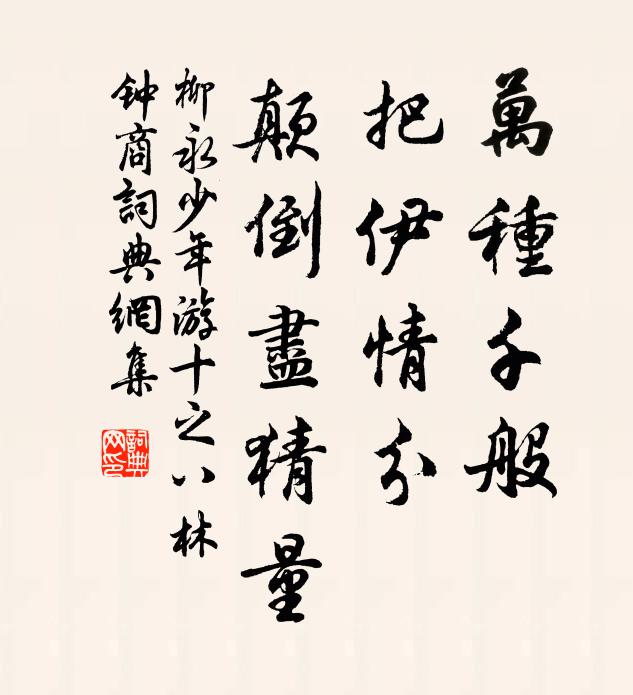 萬種千般
把伊情分
顛倒盡猜量
柳永少年游十之八林
鈡商詞典網集
詞典网印